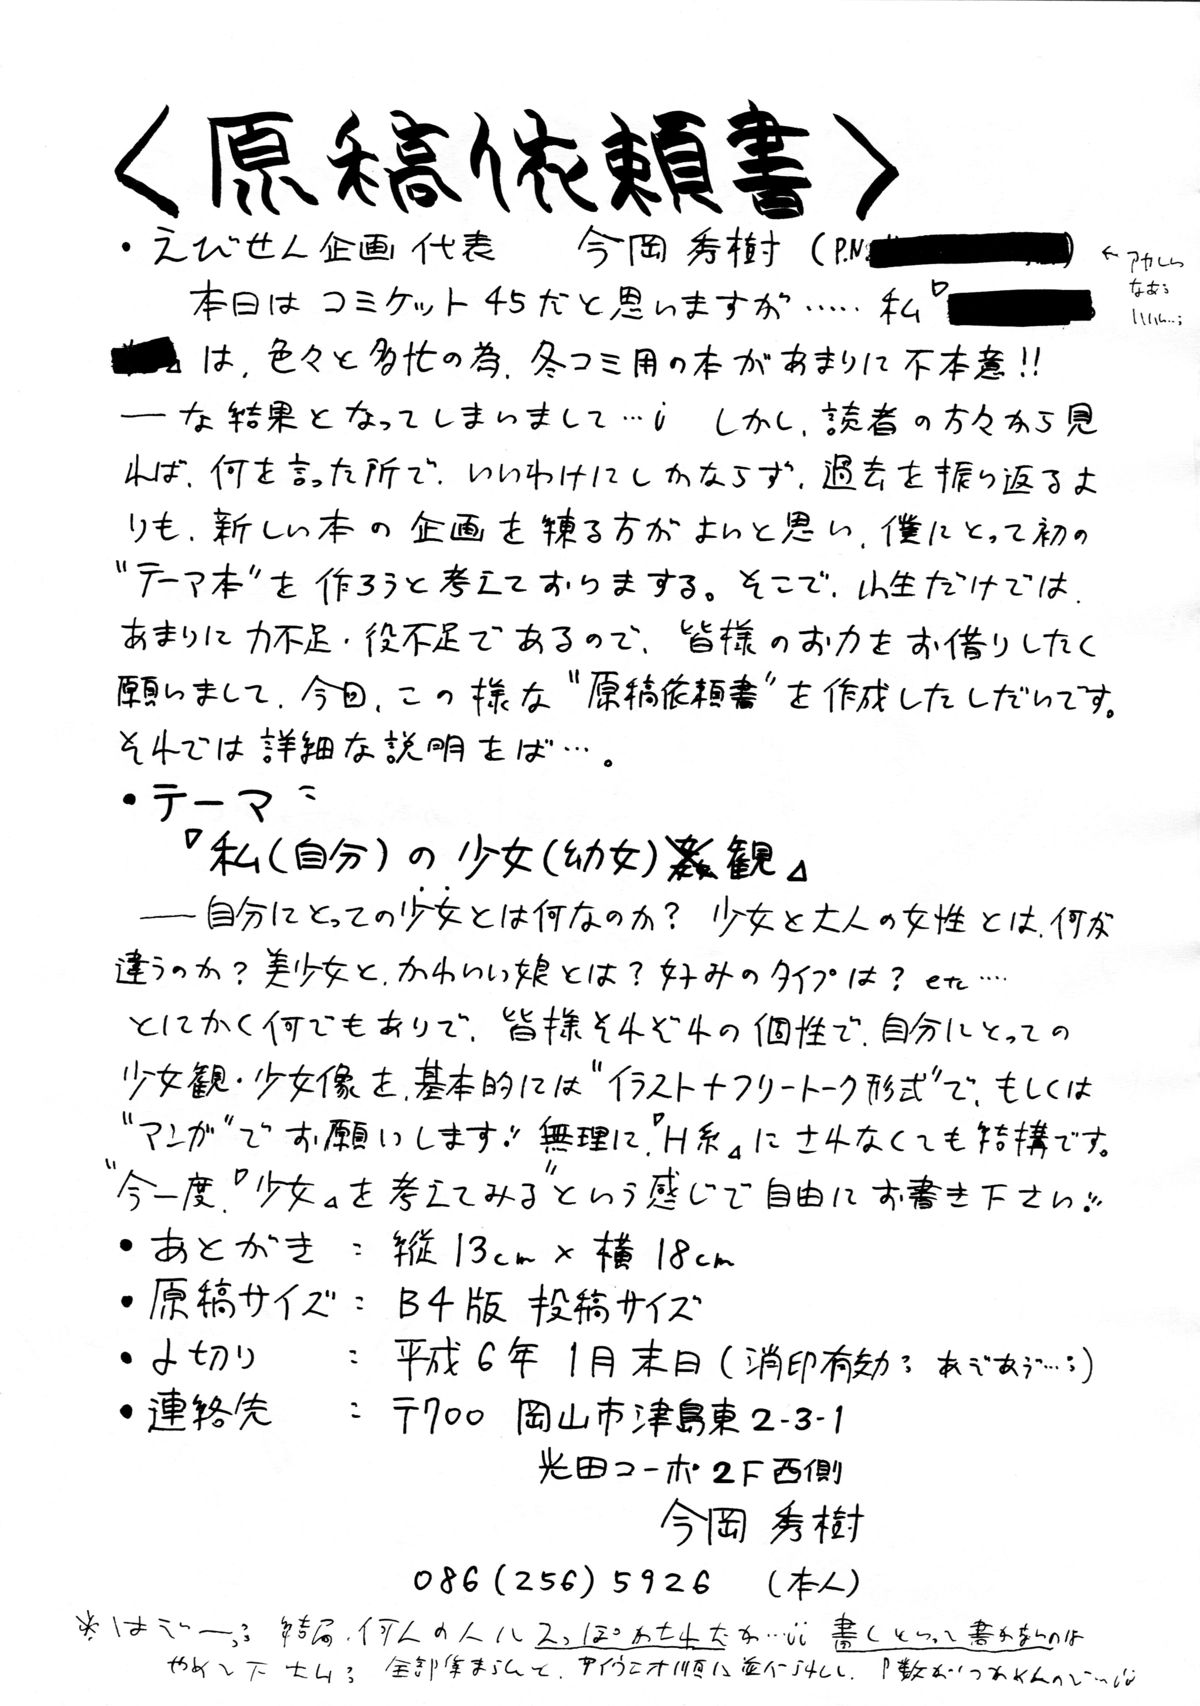 〈原稿依頼書〉
・えびせん企画 代表 今岡 秀樹 (P.N
本日は コミケット45だと思いますが…… 私『
』は、色々と多忙の為、冬コミ用の本があまりに不本意!!
―な結果となってしまいまして…¡ しかし、読者の方々から見
れば、何を言った所で、いいわけにしかならず、過去を振り返るよ
りも、新しい本の企画を練る方がよいと思い、僕にとって初の
“テーマ本”を作ろうと考えておりまする。そこで、小生だけでは、
あまりに力不足・役不足であるので、皆様のお力をお借りしたく
願いまして、今回、この様な“原稿依頼書”を作成したしだいです。
それでは詳細な説明をば…。
・テーマ:
『私(自分)の少女(幼女)観』
――自分にとっての少女とは何なのか? 少女と大人の女性とは、何が
違うのか? 美少女と、かわいい娘とは? 好みのタイプは? etc……
とにかく何でもありで、皆様それぞれの個性で、自分にとっての
少女観・少女像を、基本的には“イラスト+フリートーク形式”で、もしくは
“マンガ”でお願いします!! 無理に、『H系』にされなくても結構です。
“今一度、『少女』を考えてみる”という感じで自由にお書き下さい!!
・あとがき : 縦13cm×横18cm
・原稿サイズ : B4版 投稿サイズ
・〆切り : 平成6年1月末日(消印有効
・連絡先 : 〒700 岡山市津島東2-3-1
光田コーポ2F西側
今岡 秀樹
086(256)5926 (本人)
※ 結局、何人の人にスッぽかされたか…¡¡ 書くといって書かないのは
やめて下さい 全部集まらんと、アイウエオ順に並べられんし、P数が